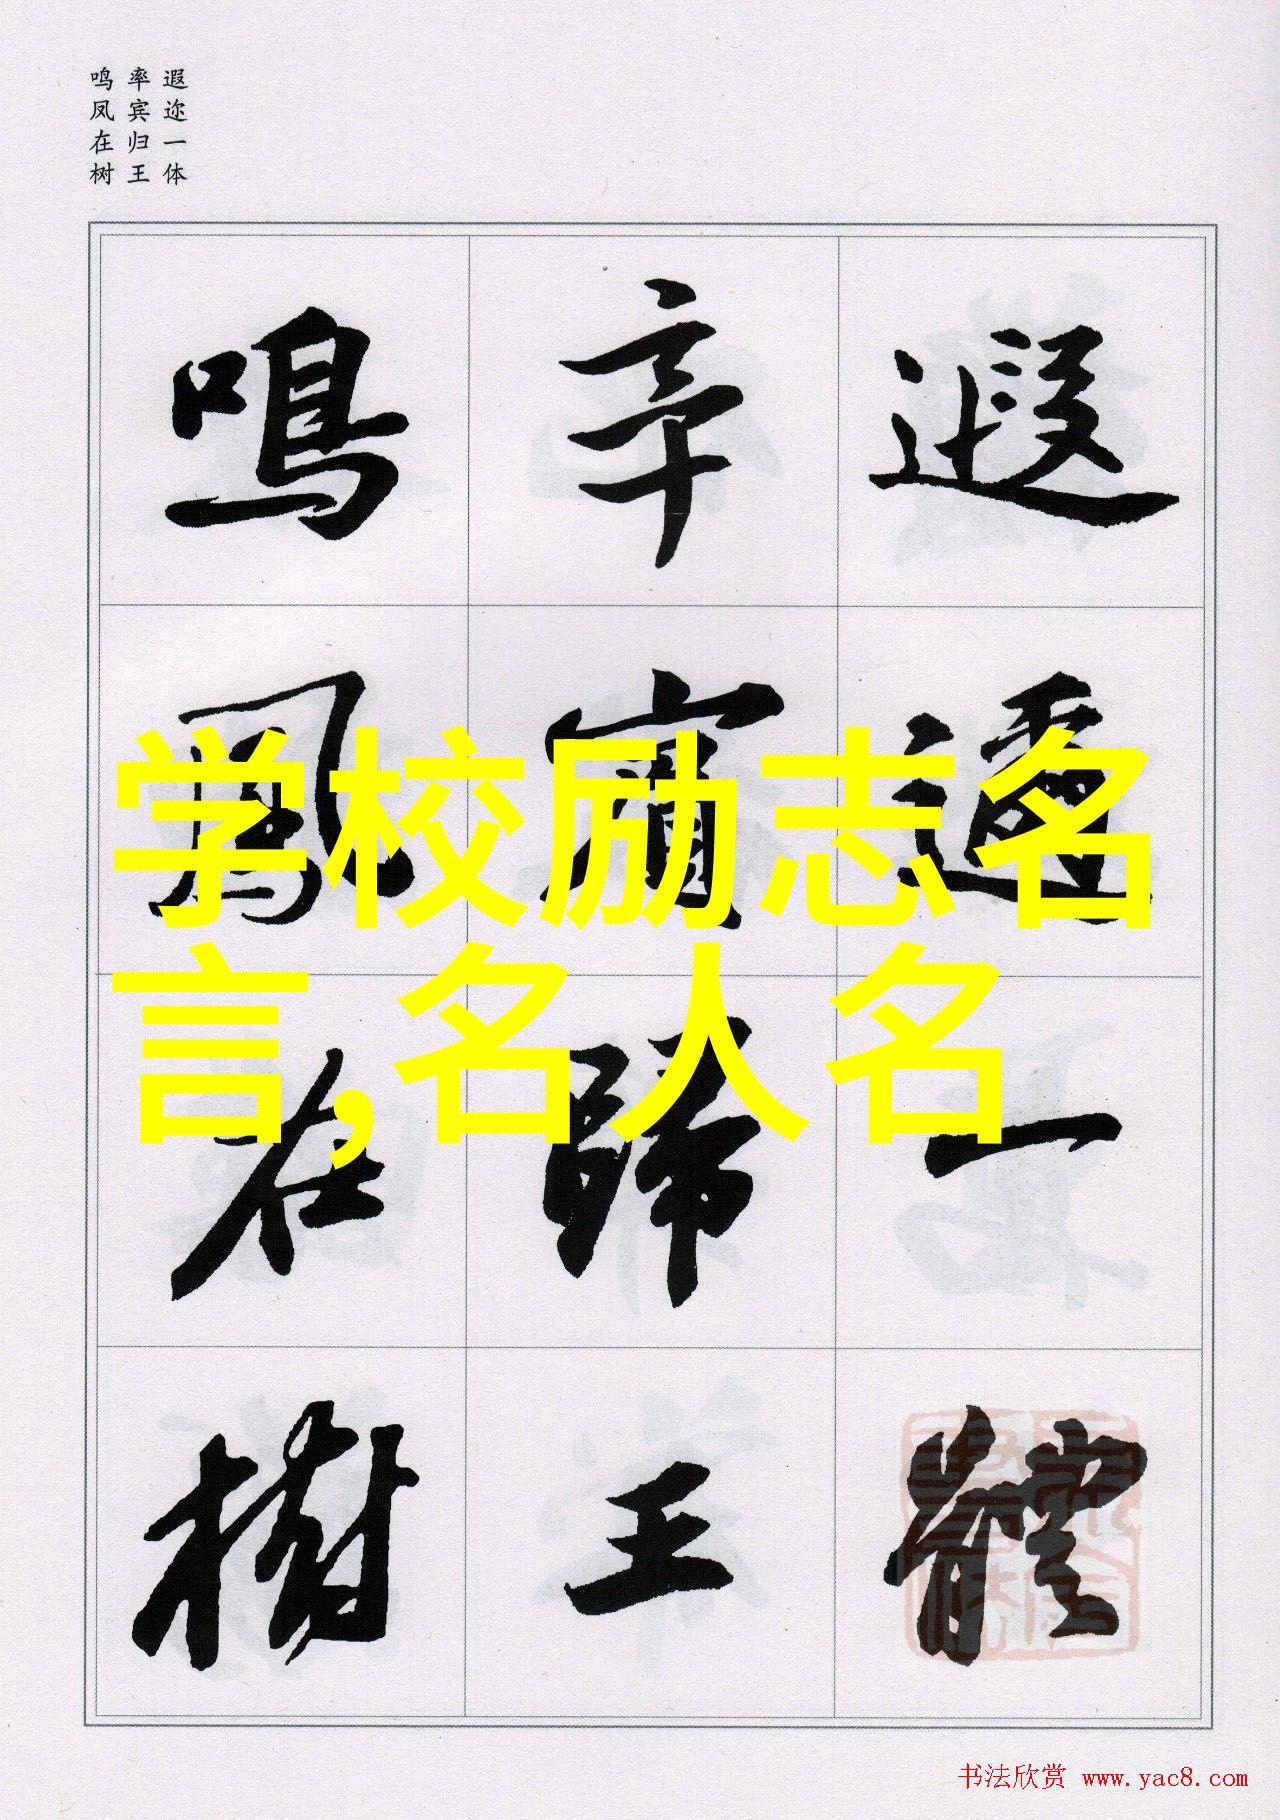 遐迩一体
率宾归王
鸣凤在树
遐邇一體
率賓歸王
鳴鳳在樹
学校励志名
言,名人名
书法欣赏 www.yac8.com